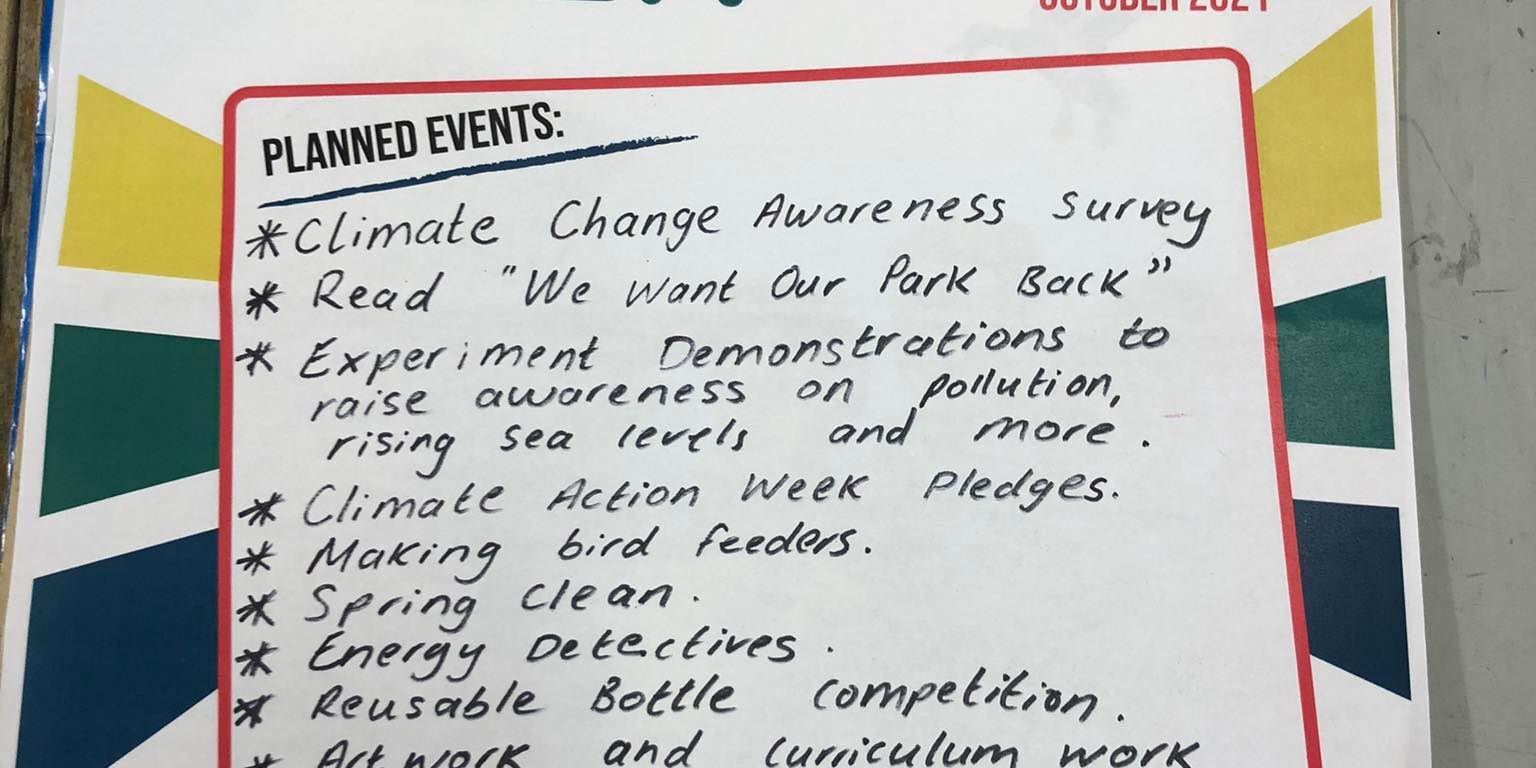 OCTOBER 2021
PLANNED EVENTS:
* Climate Change Awareness Survey
* Read "We Want Our Park Back"
* Experiment Demonstrations to
raise awareness on pollution,
rising sea levels and more.
* Climate Action Week Pledges.
* Making bird feeders.
* Spring Clean.
* Energy Detectives.
* Reusable Bottle Competition.
* Artwork and curriculum work